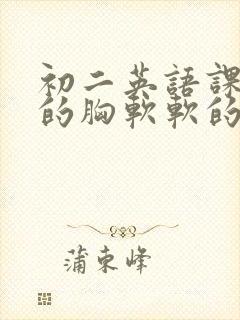 初二英語課
的胸軟軟的
蒲束峰